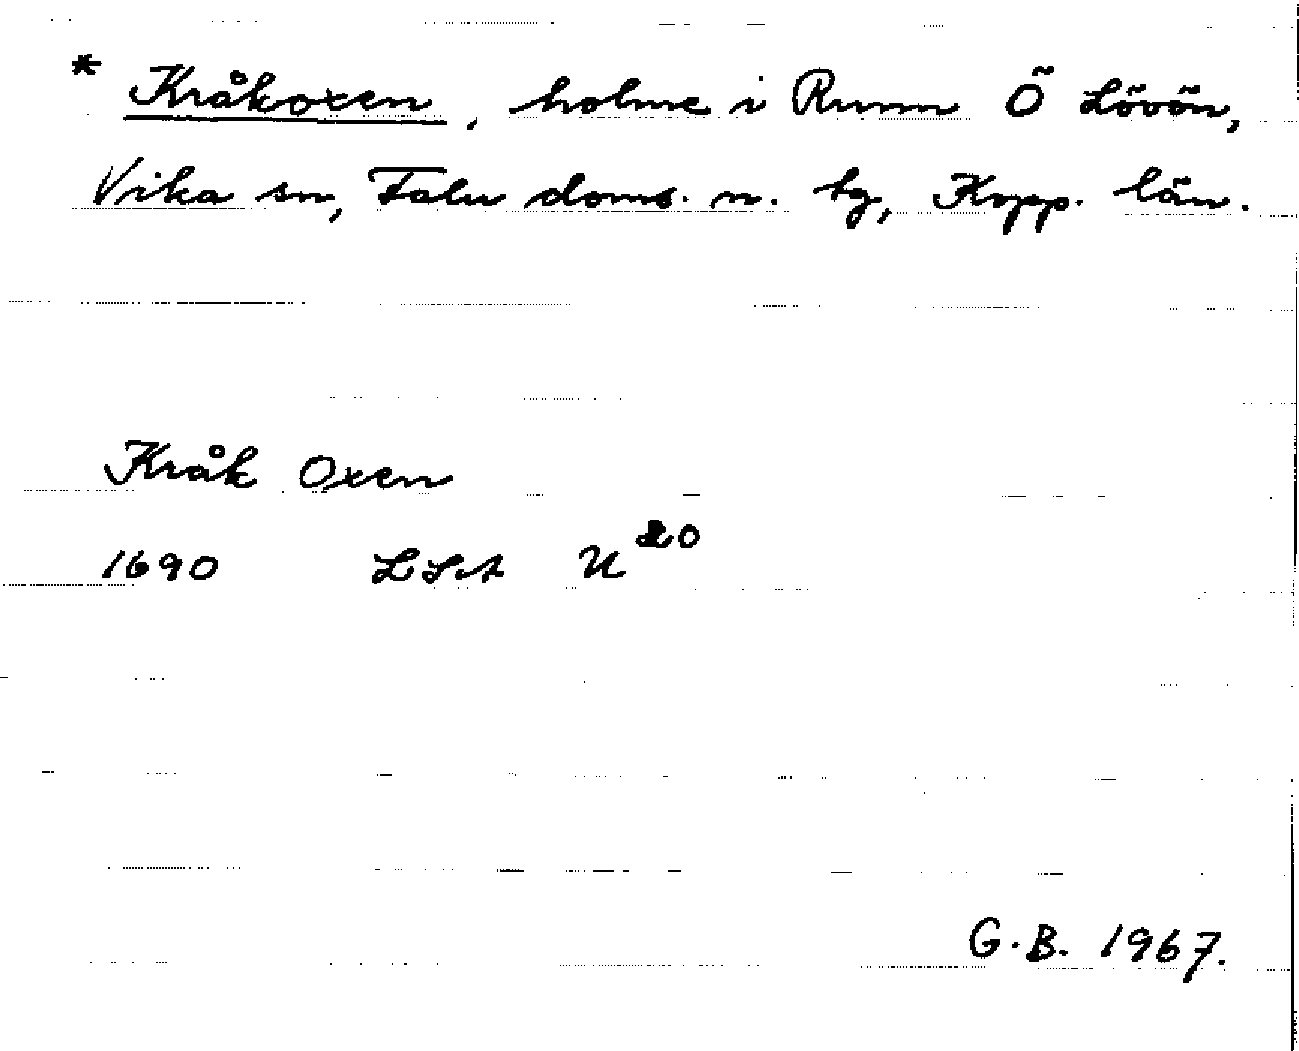 * Kråkoxen, holme i Runn Ö Lövön,
Vika sn, Falu doms. n. tg, Kopp. län.
Kråk Oxen
1690 LSA U 20
G.B. 1967.